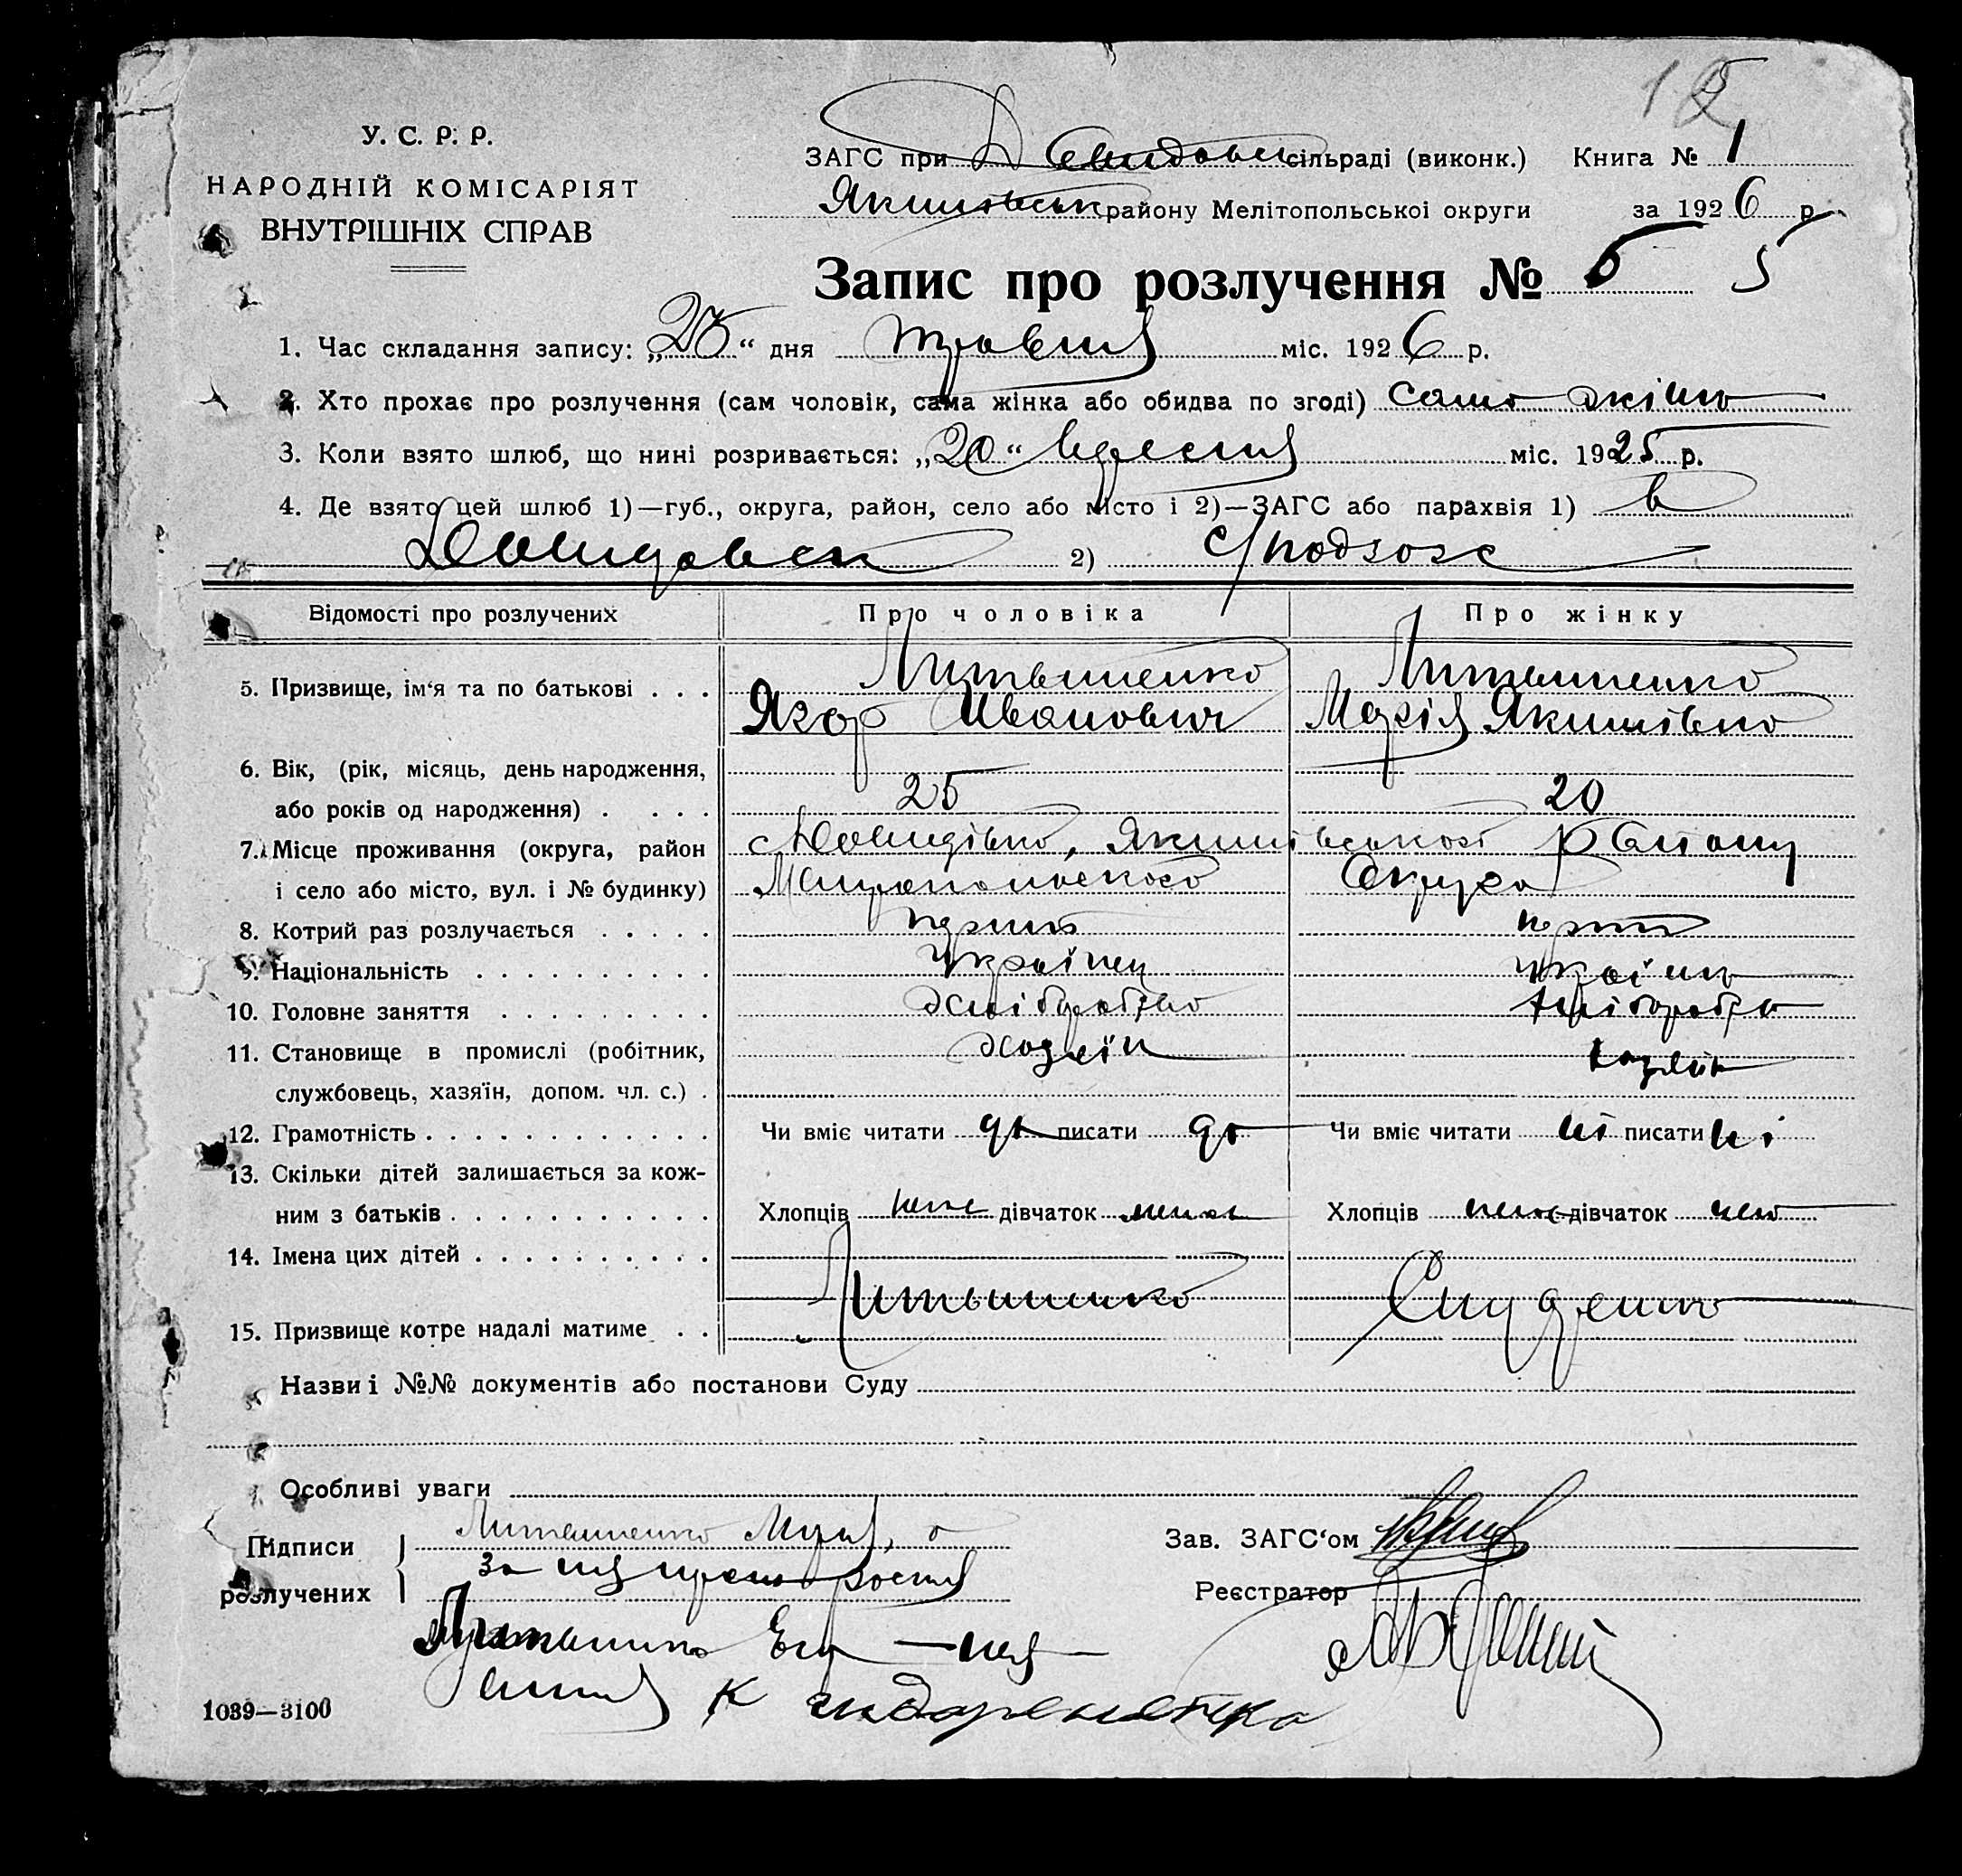 У. С. Р. Р.
НАРОДНІЙ КОМІСАРІЯТ
ВНУТРІШНІХ СПРАВ
ЗАГС при сільраді (виконк.) Книга № 1
району Мелітопольської округи за 1926 р.
Запис про розлучення № 5
1. Час складання запису: „ “ дня травня міс. 1926 р.
2. Хто прохає про розлучення (сам чоловік, сама жінка або обидва по згоді) сама жінка
3. Коли взято шлюб, що нині розривається: „20“ вересня міс. 1925 р.
4. Де взято цей шлюб 1)—губ., округа, район, село або місто і 2)—ЗАГС або парахвія 1) в
2)
Відомості про розлучених
Про чоловіка
Про жінку
5. Призвище, ім‘я та по батькові . . .
Литвиненко
Ягор Иванович
Литвиненко
Марія Якимівна
6. Вік, (рік, місяць, день народження,
або років од народження) . . . .
25
20
7. Місце проживання (округа, район
і село або місто, вул. і № будинку)
с Давидівка, Якимівського району
округа
8. Котрий раз розлучається . . . . .
9. Національність . . . . . . . . . .
Українец
10. Головне заняття . . . . . . . . .
хліборобство
11. Становище в промислі (робітник,
службовець, хазяїн, допом. чл. с.) .
хазяїн
12. Грамотність . . . . . . . . . . . . .
Чи вміє читати да писати да
Чи вміє читати ні писати ні
13. Скільки дітей залишається за кож-
ним з батьків . . . . . . . . . . . .
Хлопців нема дівчаток нема
Хлопців нема дівчаток нема
14. Імена цих дітей . . . . . . . . . .
15. Призвище котре надалі матиме . .
Литвиненко
Назви і №№ документів або постанови Суду
Особливі уваги
Підписи
розлучених
Литвиненко Марія, а
за
Зав. ЗАГС‘ом
Реєстратор
К
1039—3100